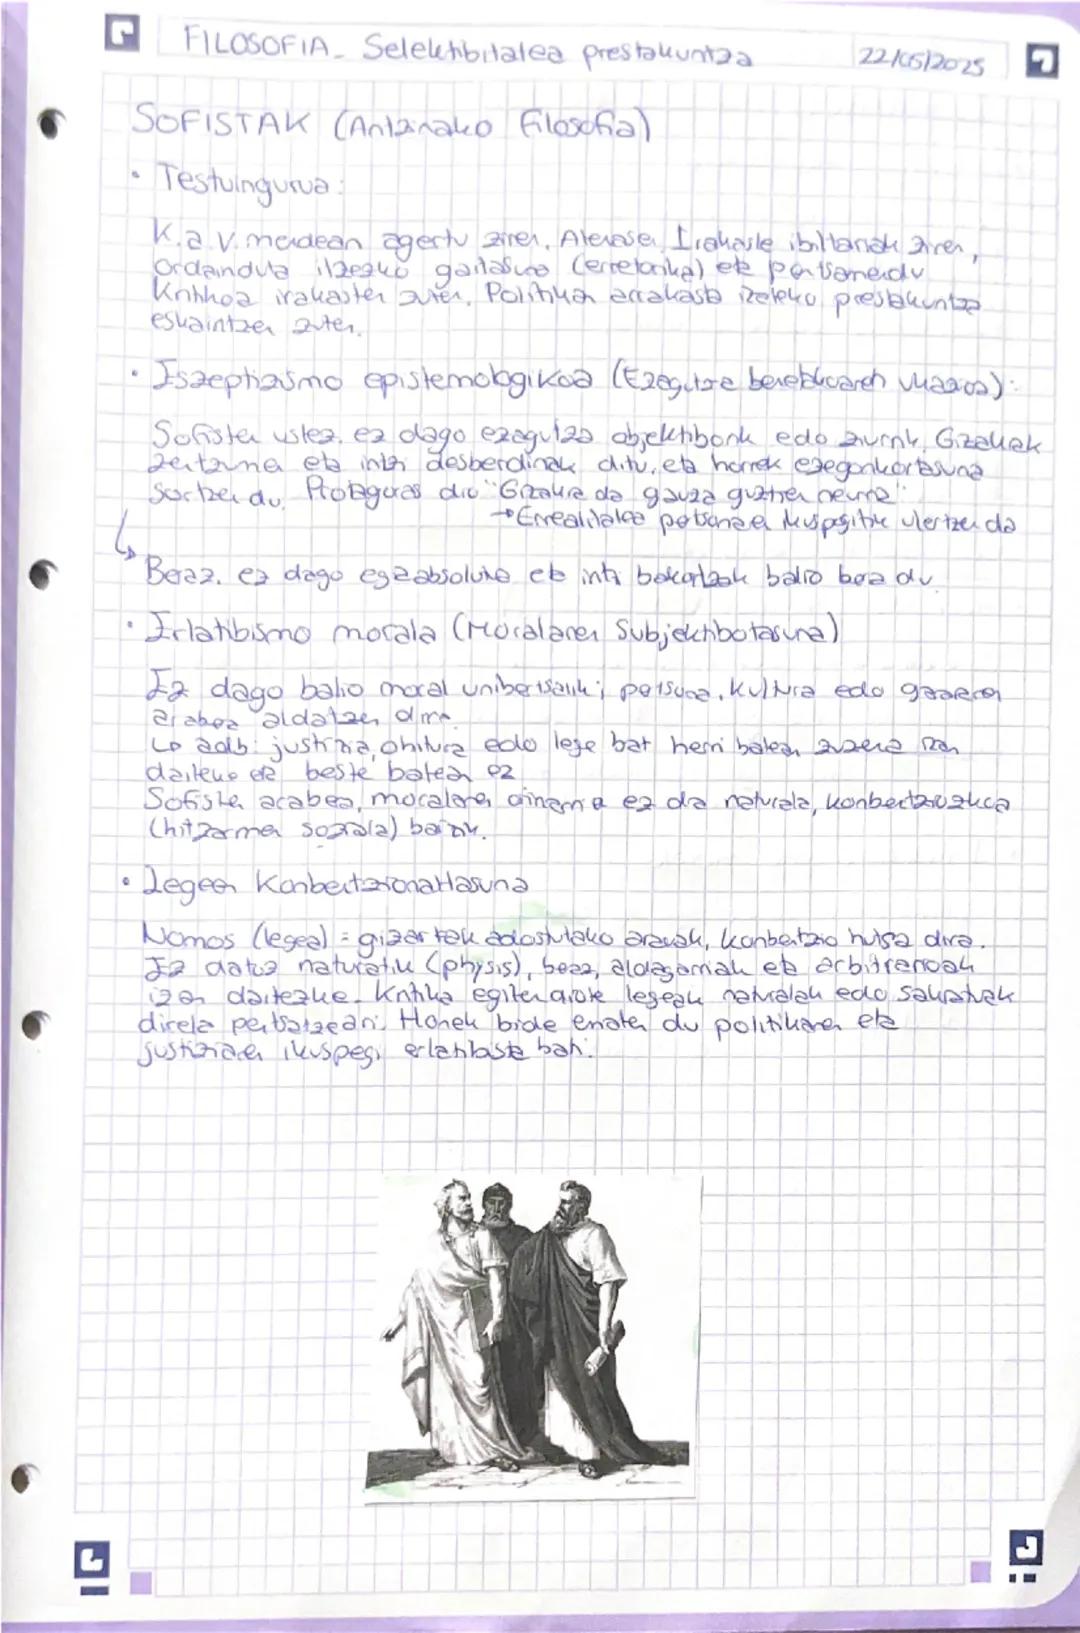 FILOSOFIA_ Selektibitatea prestakuntza
22/05/2025
SOFISTAK (Antzinako Filosofia)
• Testuingurua:
K.a V. mendean agertu ziren, Atenasen. Irakasle ibiltariak ziren,
ordainduta ilezko gaitasuna (erretorika) eta pentsamendu
kritikoa irakasten zuten. Politikan arrakasta izateko prestakuntza
eskaintzen zuten.
• Eszeptizismo epistemologikoa (Ezagutza benetakoaren ukazioa):
Sofisten ustez, ez dago ezagutza objektiborik edo ziurrik. Gizakiak
zentzumena eta iritzi desberdinak ditu, eta horrek ezegonkortasuna
sortzen du. Protagoras dio "Gizakia da gauza guztien neurria".
→ Errealitatea pertsonaren ikuspegitik ulertzen da
↳ Beraz, ez dago egia absoluturik eta iritzi bakoitzak balio bera du
• Erlatibismo morala (Moralaren Subjektibotasuna)
Ez dago balio moral unibertsalik; pertsona, kultura edo garaiaren
arabera aldatzen dira.
↳ adb: justizia, ohitura edo lege bat herri batean zuzena izan
daiteke eta beste batean ez
Sofisten arabera, moralaren oinarria ez da naturala, konbentziozkoa
(hitzarmen soziala) baizik.
• Legeen Konbentzionaltasuna
Nomos (legea) = gizartek adostutako arauak, konbentzio hutsa dira.
Ez datoz naturatik (physis), beraz, aldagarriak eta arbitrarioak
izan daitezke. Kritika egiten diote legeak naturalak edo sakratuak
direla pentsatzeari. Honek bide ematen du politikaren eta
justiziaren ikuspegi erlatibista bati.